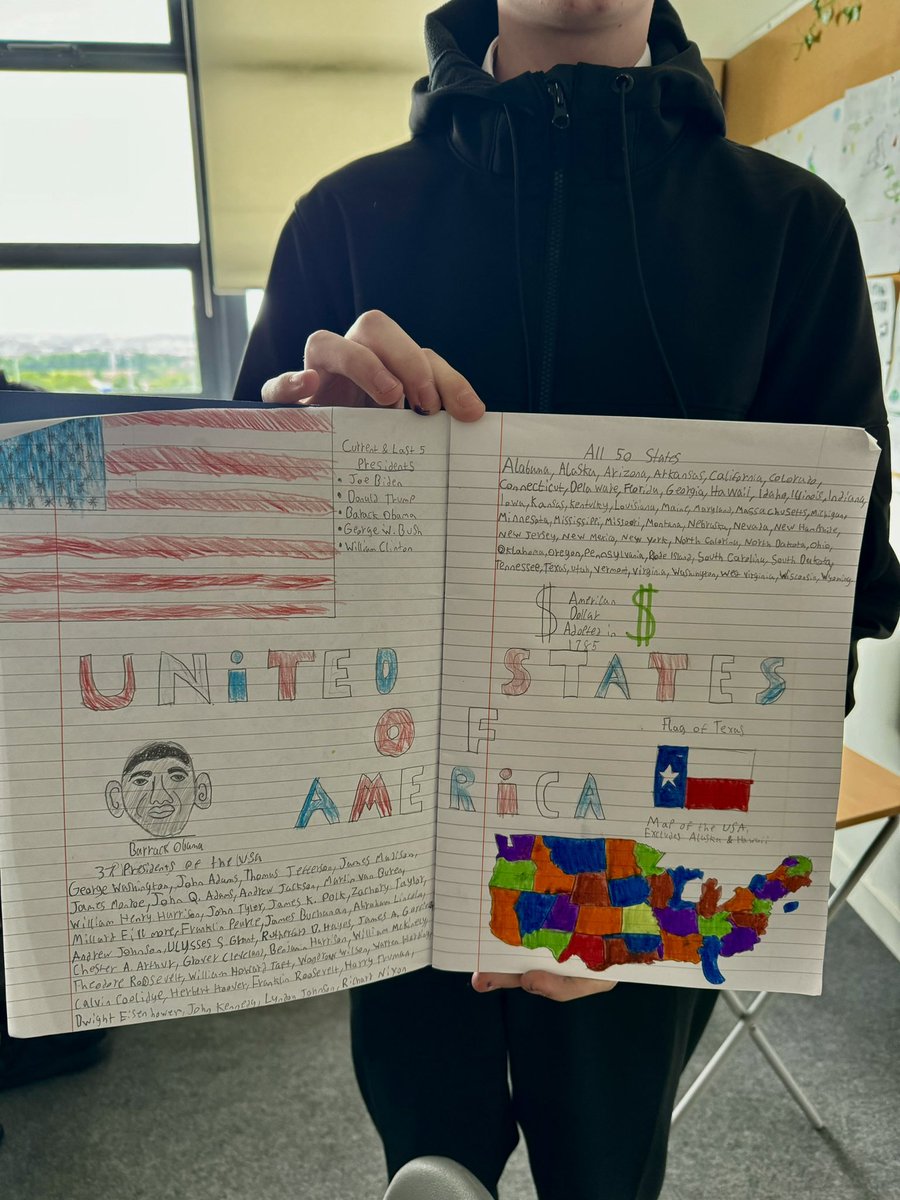 Current & Last 5
Presidents
• Joe Biden
• Donald Trump
• Barack Obama
• George W. Bush
• William Clinton
All 50 States
Alabuma, Alaska, Arizona, Arkansas, California, Colorado,
Connecticut, Delaware, Florida, Georgia, Hawaii, Idaho, Illinois, Indiana,
Iowa, Kansas, Kentucky, Louisiana, Maine, Maryland, Massachusetts, Michigan,
Minnesota, Mississippi, Missouri, Montana, Nebraska, Nevada, New Hamshire,
New Jersey, New Mexico, New York, North Carolina, North Dakota, Ohio,
Oklahoma, Oregon, Pennsylvania, Rode Island, South Carolina, South Dakota,
Tennessee, Texas, Utah, Vermont, Virginia, Washington, West Virginia, Wisconsin, Wyoming
$ American $
Dollar
Adopted in
1785
UNiTED STATES
OF
AMERiCA
Flag of Texas
Barrack Obama
Map of the USA,
Excludes Alaska & Hawaii
37 Presidents of the USA
George Washington, John Adams, Thomas Jefferson, James Madison,
James Monroe, John Q. Adams, Andrew Jackson, Martin Van Buren,
William Henry Harrison, John Tyler, James K. Polk, Zachary Taylor,
Millard Fillmore, Franklin Peirce, James Buchanan, Abraham Lincoln,
Andrew Johnson, Ulysses S. Grant, Rutherford D. Hayes, James A. Garfield
Chester A. Arthur, Grover Cleveland, Benjamin Harrison, William McKinley
Theodore Roosevelt, William Howard Taft, Woodrow Wilson, Warren Harding
Calvin Coolidge, Herbert Hoover, Franklin Roosevelt, Harry Truman,
Dwight Eisenhower, John Kennedy, Lyndon Johnson, Richard Nixon